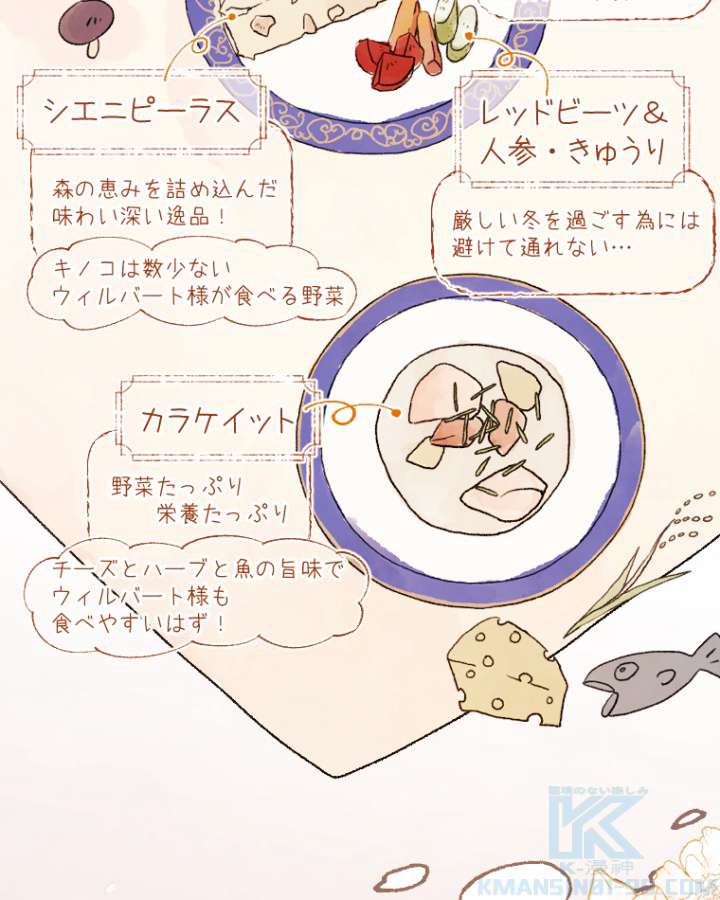 シエニピーラス
森の恵みを詰め込んだ
味わい深い逸品！
キノコは数少ない
ウィルバート様が食べる野菜
レッドビーツ＆
人参・きゅうり
厳しい冬を過ごす為には
避けて通れない…
カラケイット
野菜たっぷり
栄養たっぷり
チーズとハーブと魚の旨味で
ウィルバート様も
食べやすいはず！
K
K-漫神